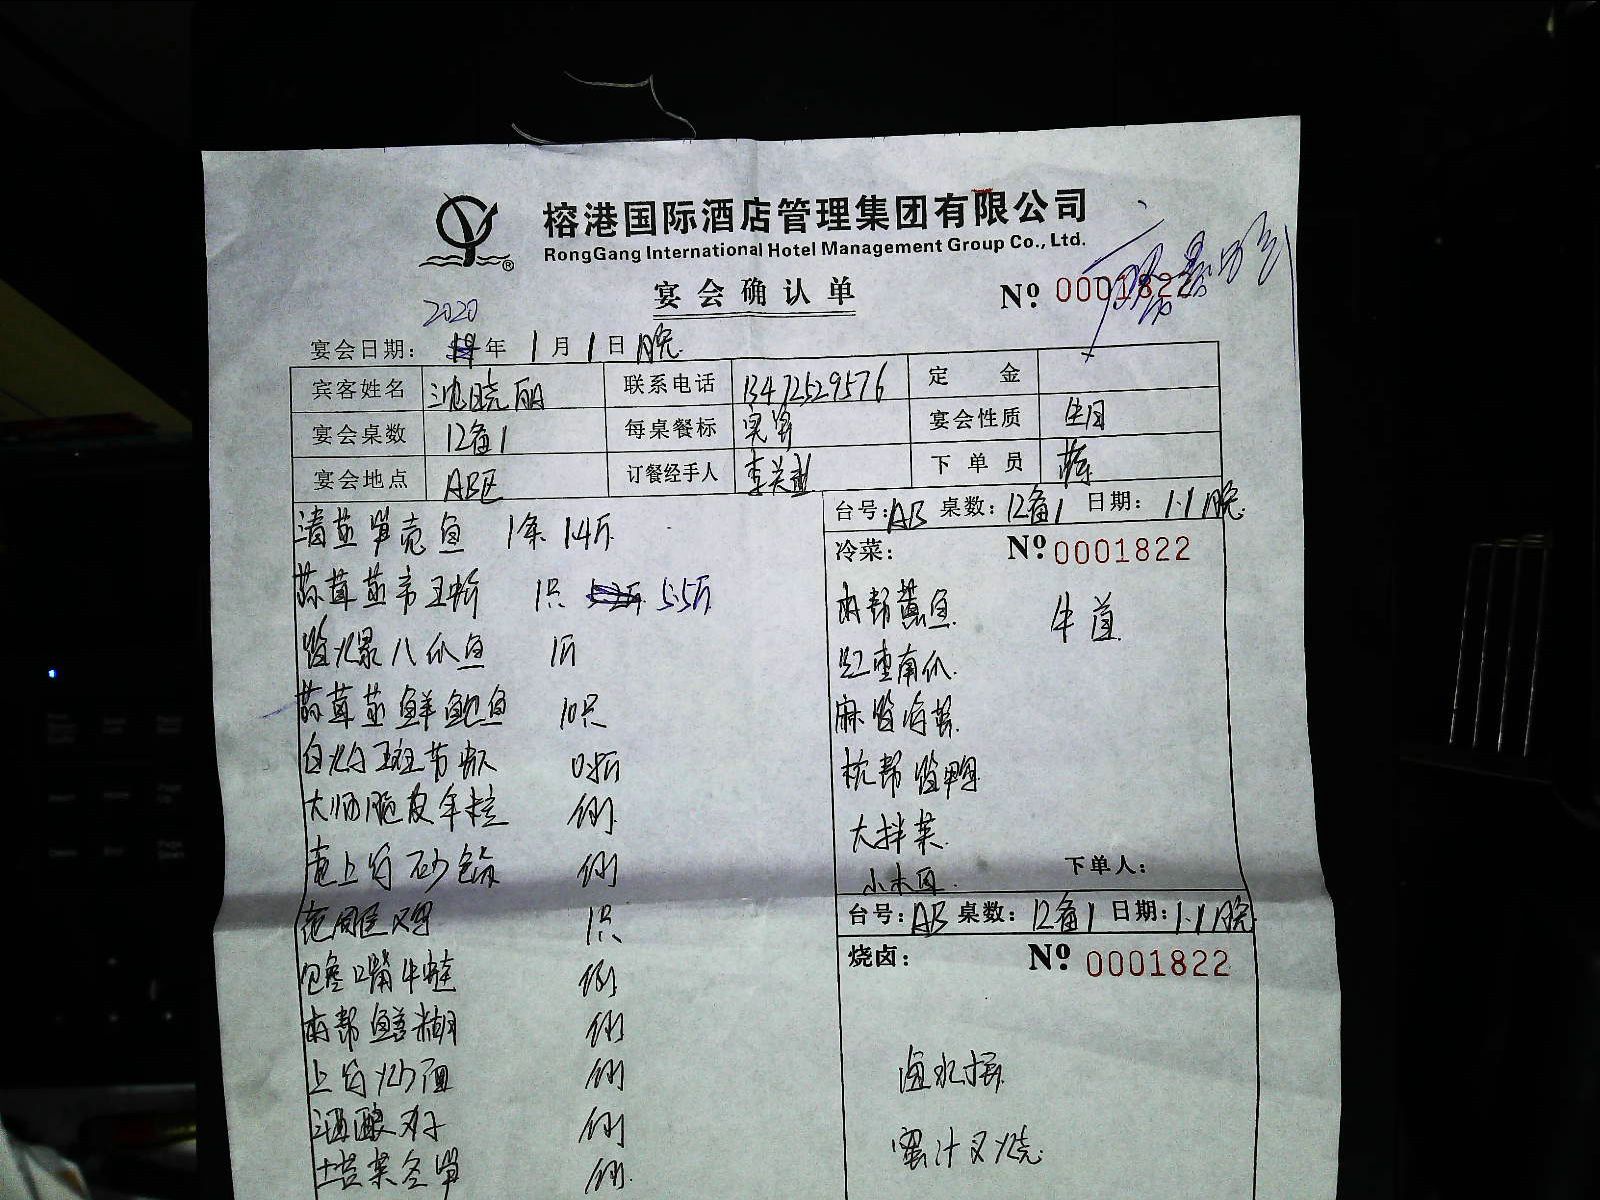 榕港国际酒店管理集团有限公司
RongGang International Hotel Management Group Co., Ltd.
宴会确认单
№ 0001822
2020
宴会日期: 年 1月1日 晚
宾客姓名 沈晓丽 联系电话 13472529576 定金
宴会桌数 12备1 每桌餐标 宴会性质 生日
宴会地点 AB区 订餐经手人 下单员
台号: AB 桌数: 12备1 日期: 1.1晚
清蒸笋壳鱼 1条 1.4斤
冷菜: № 0001822
蒜茸蒸帝王蟹 1只 5.5斤
本帮熏鱼
红枣南瓜
酱爆八爪鱼 1斤
蒜茸蒸鲜鲍鱼 10只
麻酱海蜇
白灼斑节虾
杭帮酱鸭
大师脆皮 例
大拌菜
小木耳
下单人:
老上海砂锅 例
台号: AB 桌数: 12备1 日期: 1.1晚
1只
烧卤: № 0001822
牛蛙 例
本帮鳝糊 例
上海炒面 例
卤水拼
酒酿 例
蜜汁叉烧
菜冬笋 例